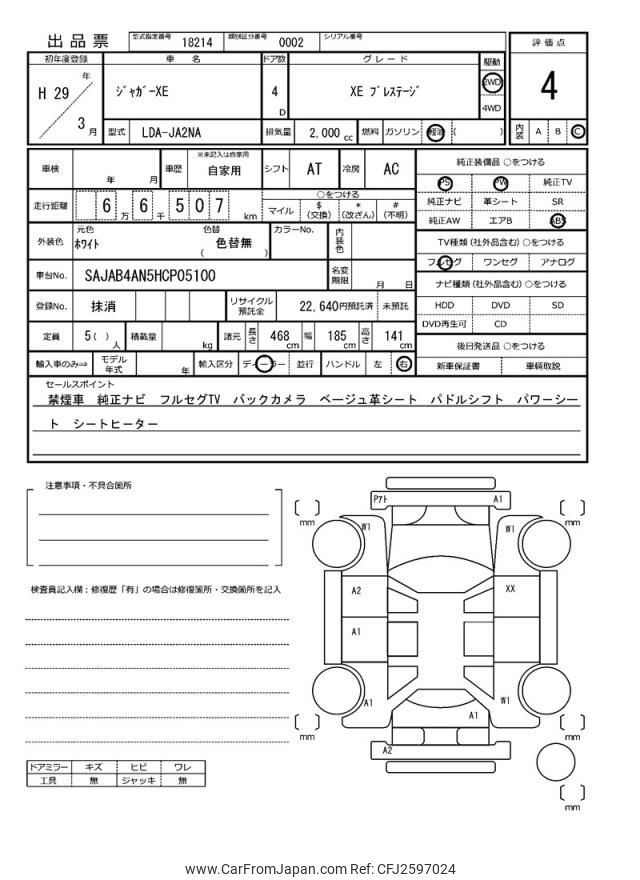 出品票 型式指定番号 18214 類別区分番号 0002 シリアル番号
評価点
4
内装 A B C
初年度登録 車名 ドア数 グレード 駆動
H 29 年 3 月
ジャガーXE 4 D XE プレステージ 2WD
4WD
型式 LDA-JA2NA 排気量 2,000 cc 燃料 ガソリン 軽油 ( )
車検 年 月 車歴 ※未記入は自家用 自家用 シフト AT 冷房 AC
走行距離 6 万 6 千 5 0 7 km ○をつける
マイル $ (交換) * (改ざん) # (不明)
外装色 元色 ホワイト 色替 色替無 ( ) カラーNo. 内装色
車台No. SAJAB4AN5HCP05100 名変期限 月 日
登録No. 抹消 リサイクル預託金 22,640円預託済 未預託
定員 5( )人 積載量 kg 諸元 長さ 468cm 幅 185cm 高さ 141cm
輸入車のみ⇒ モデル年式 年 輸入区分 ディーラー 並行 ハンドル 左 右
純正装備品 ○をつける
PS PW 純正TV
純正ナビ 革シート SR
純正AW エアB ABS
TV種類 (社外品含む) ○をつける
フルセグ ワンセグ アナログ
ナビ種類 (社外品含む) ○をつける
HDD DVD SD
DVD再生可 CD
後日発送品 ○をつける
新車保証書 車輌取説
セールスポイント
禁煙車 純正ナビ フルセグTV バックカメラ ベージュ革シート パドルシフト パワーシー
ト シートヒーター
注意事項・不具合箇所
検査員記入欄：修復歴「有」の場合は修復箇所・交換箇所を記入
ドアミラー キズ ヒビ ワレ
工具 無 ジャッキ 無
Pアト A1
[ ] mm [ ] mm
W1 W1
A2 XX
A1
A1 W1
A1
[ ] mm [ ] mm
A2
[ ] mm
www.CarFromJapan.com Ref: CFJ2597024